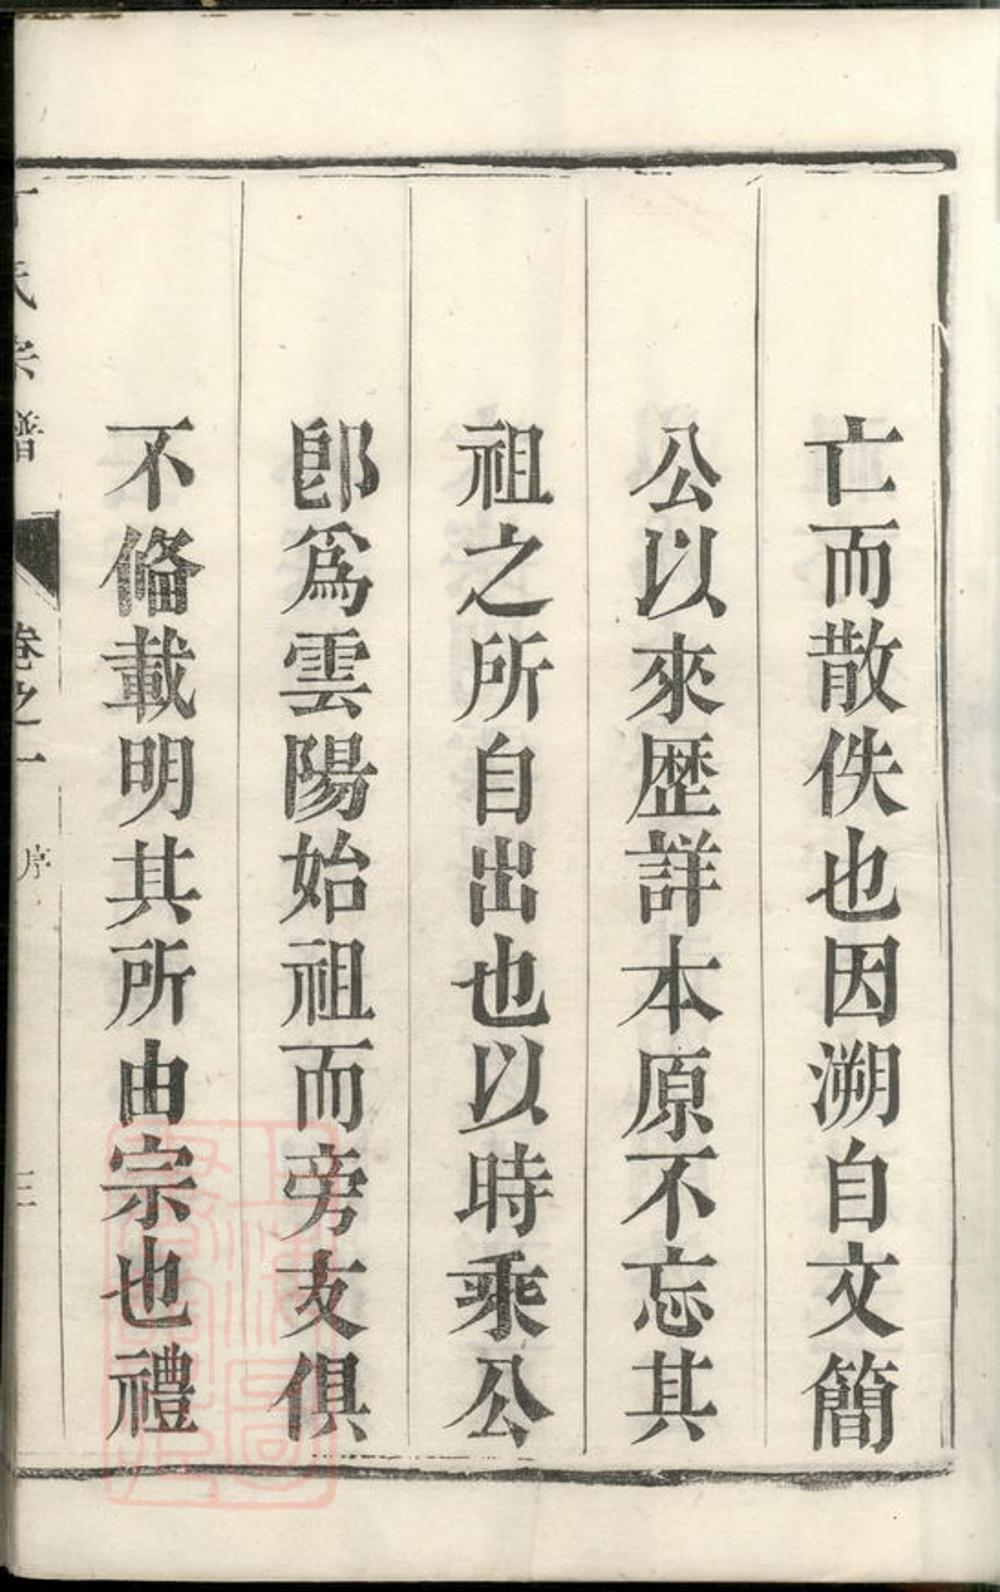 亡而散佚也因溯自文簡
公以來歴詳本原不忘其
祖之所自出也以時乘公
郎為雲陽始祖而旁支俱
不偹載明其所由宗也禮
氏宗譜
卷之一
序
三